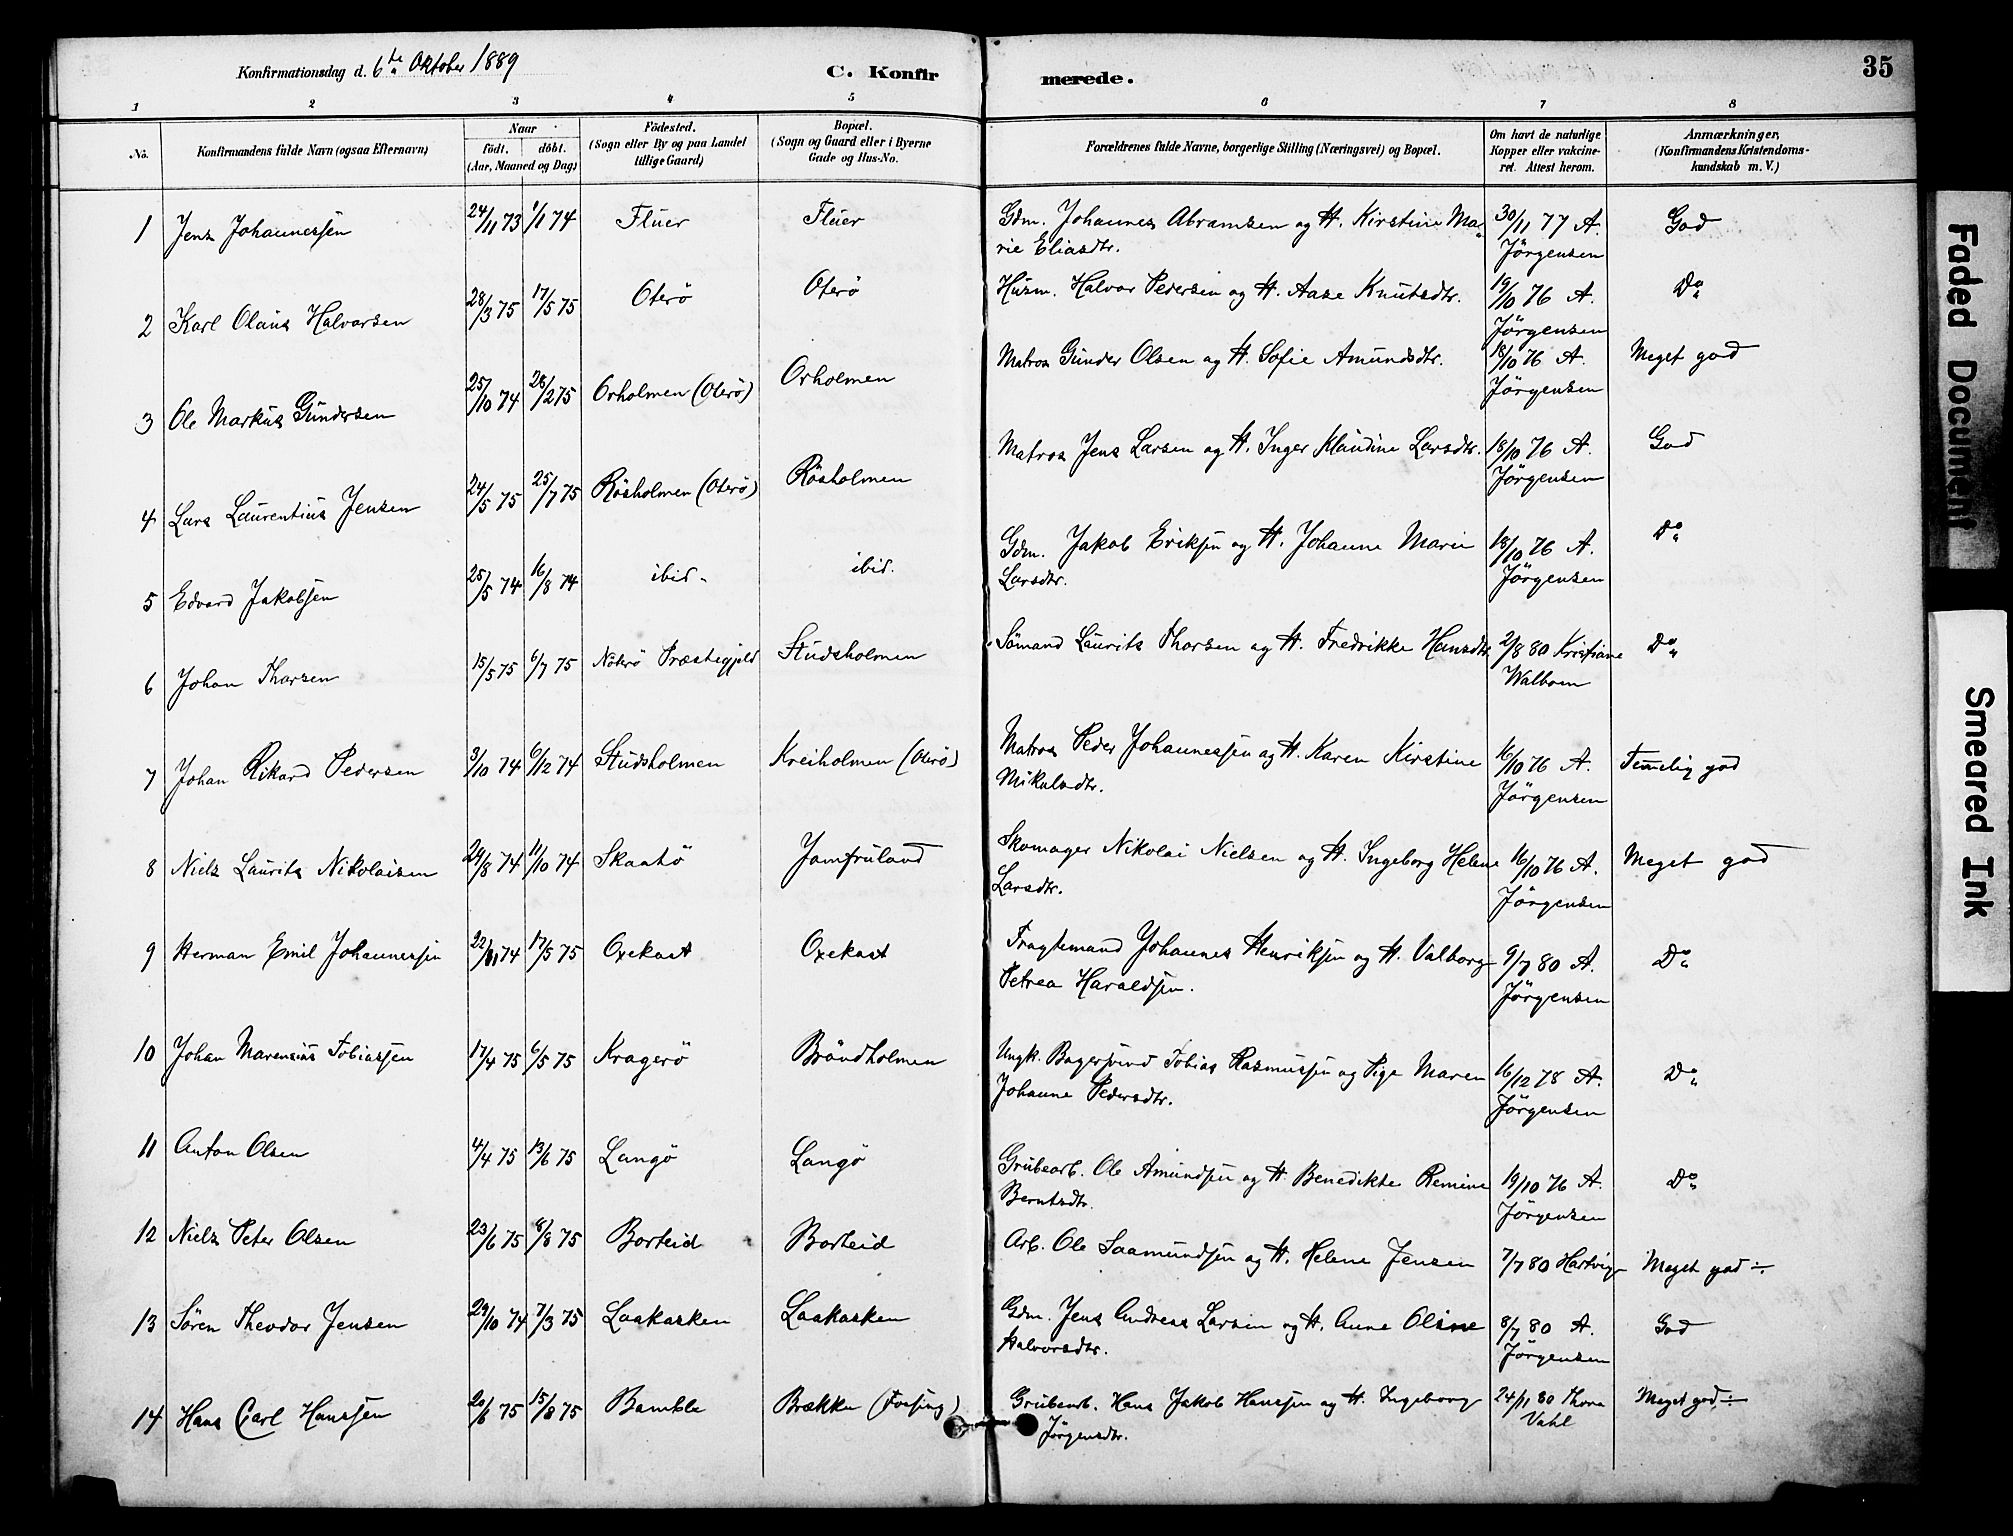 Konfirmationsdag d. 6te Oktober 1889
C. Konfir merede. 35
1 2 3 4 5 6 7 8
No. Konfirmandens fulde Navn (ogsaa Efternavn) Naar födt. döbt. (Aar, Maaned og Dag) Födested. (Sogn eller By og paa Landet tillige Gaard) Bopæl. (Sogn og Gaard eller i Byerne Gade og Hus-No. Forældrenes fulde Navne, borgerlige Stilling (Næringsvei) og Bopæl. Om havt de naturlige Kopper eller vakcineret. Attest herom. Anmærkninger, (Konfirmandens Kristendomskundskab m. V.)
1 Jens Johannessen 24/11 73 1/1 74 Fluer Fluer Gdm. Johannes Abramsen og H. Kirstine Marie Eliasdtr. 30/11 77 A. Jörgensen God
2 Karl Olaus Halvorsen 28/3 75 17/5 75 Oterö Oterö Husm. Halvor Pedersen og H. Aase Knutsdtr. 19/10 76 A. Jörgensen Do
3 Ole Markus Gundersen 25/10 74 28/2 75 Orholmen (Oterö) Orholmen Matros Gunder Olsen og H. Sofie Amundsdtr. 18/10 76 A. Jörgensen Meget god
4 Lars Laurentius Jensen 24/5 75 25/7 75 Rösholmen (Oterö) Rösholmen Matros Jens Larsen og H. Inger Klaudine Larsdtr. 18/10 76 A. Jörgensen God
5 Edvard Jakobsen 25/5 74 16/8 74 ibid. ibid. Gdm. Jakob Eriksen og H. Johanne Marie Larsdtr. 18/10 76 A. Jörgensen Do
6 Johan Thorsen 15/5 75 6/7 75 Nöterö Præstegjeld Studsholmen Sömand Laurits Thorsen og H. Fredrikke Hansdtr. 2/8 80 Kristiane Walbom Do
7 Johan Rikard Pedersen 3/10 74 6/12 74 Studsholmen Kreiholmen (Oterö) Matros Peder Johannessen og H. Karen Kirstine Mikalsdtr. 16/10 76 A. Jörgensen Temelig god
8 Niels Laurits Nikolaisen 29/8 74 11/10 74 Skaatö Jomfruland Skomager Nikolai Nielsen og H. Ingeborg Helene Larsdtr. 16/10 76 A. Jörgensen Meget god
9 Herman Emil Johannessen 22/11 74 17/5 75 Oxekast Oxekast Fragtemand Johannes Henriksen og H. Valborg Petrea Haraldsen. 9/7 80 A. Jörgensen Do
10 Johan Marensius Tobiassen 17/4 75 6/5 75 Kragerö Bröndholmen Ungk. Bagersvend Tobias Rasmussen og Pige Maren Johanne Pedersdtr. 16/12 78 A. Jörgensen Do
11 Anton Olsen 4/4 75 13/6 75 Langö Langö Grubearb. Ole Amundsen og H. Benedikte Remine Berntsdtr. 19/10 76 A. Jörgensen Do
12 Niels Peter Olsen 23/6 75 8/8 75 Borteid Borteid Arb. Ole Saamundsen og H. Helene Jensen 7/7 80 Hartvig Meget god ÷.
13 Sören Theodor Jensen 29/10 74 7/3 75 Laakasken Laakasken Gdm. Jens Andreas Larsen og H. Anne Olsine Halvorsdtr. 8/7 80 A. Jörgensen God
14 Hans Carl Hanssen 20/6 75 15/8 75 Bamble Brække (Fossing) Grubearb. Hans Jakob Hanssen og H. Ingeborg Jörgensdtr. 24/11 80 Thora Vahl Meget god ÷
Faded Document
Smeared Ink